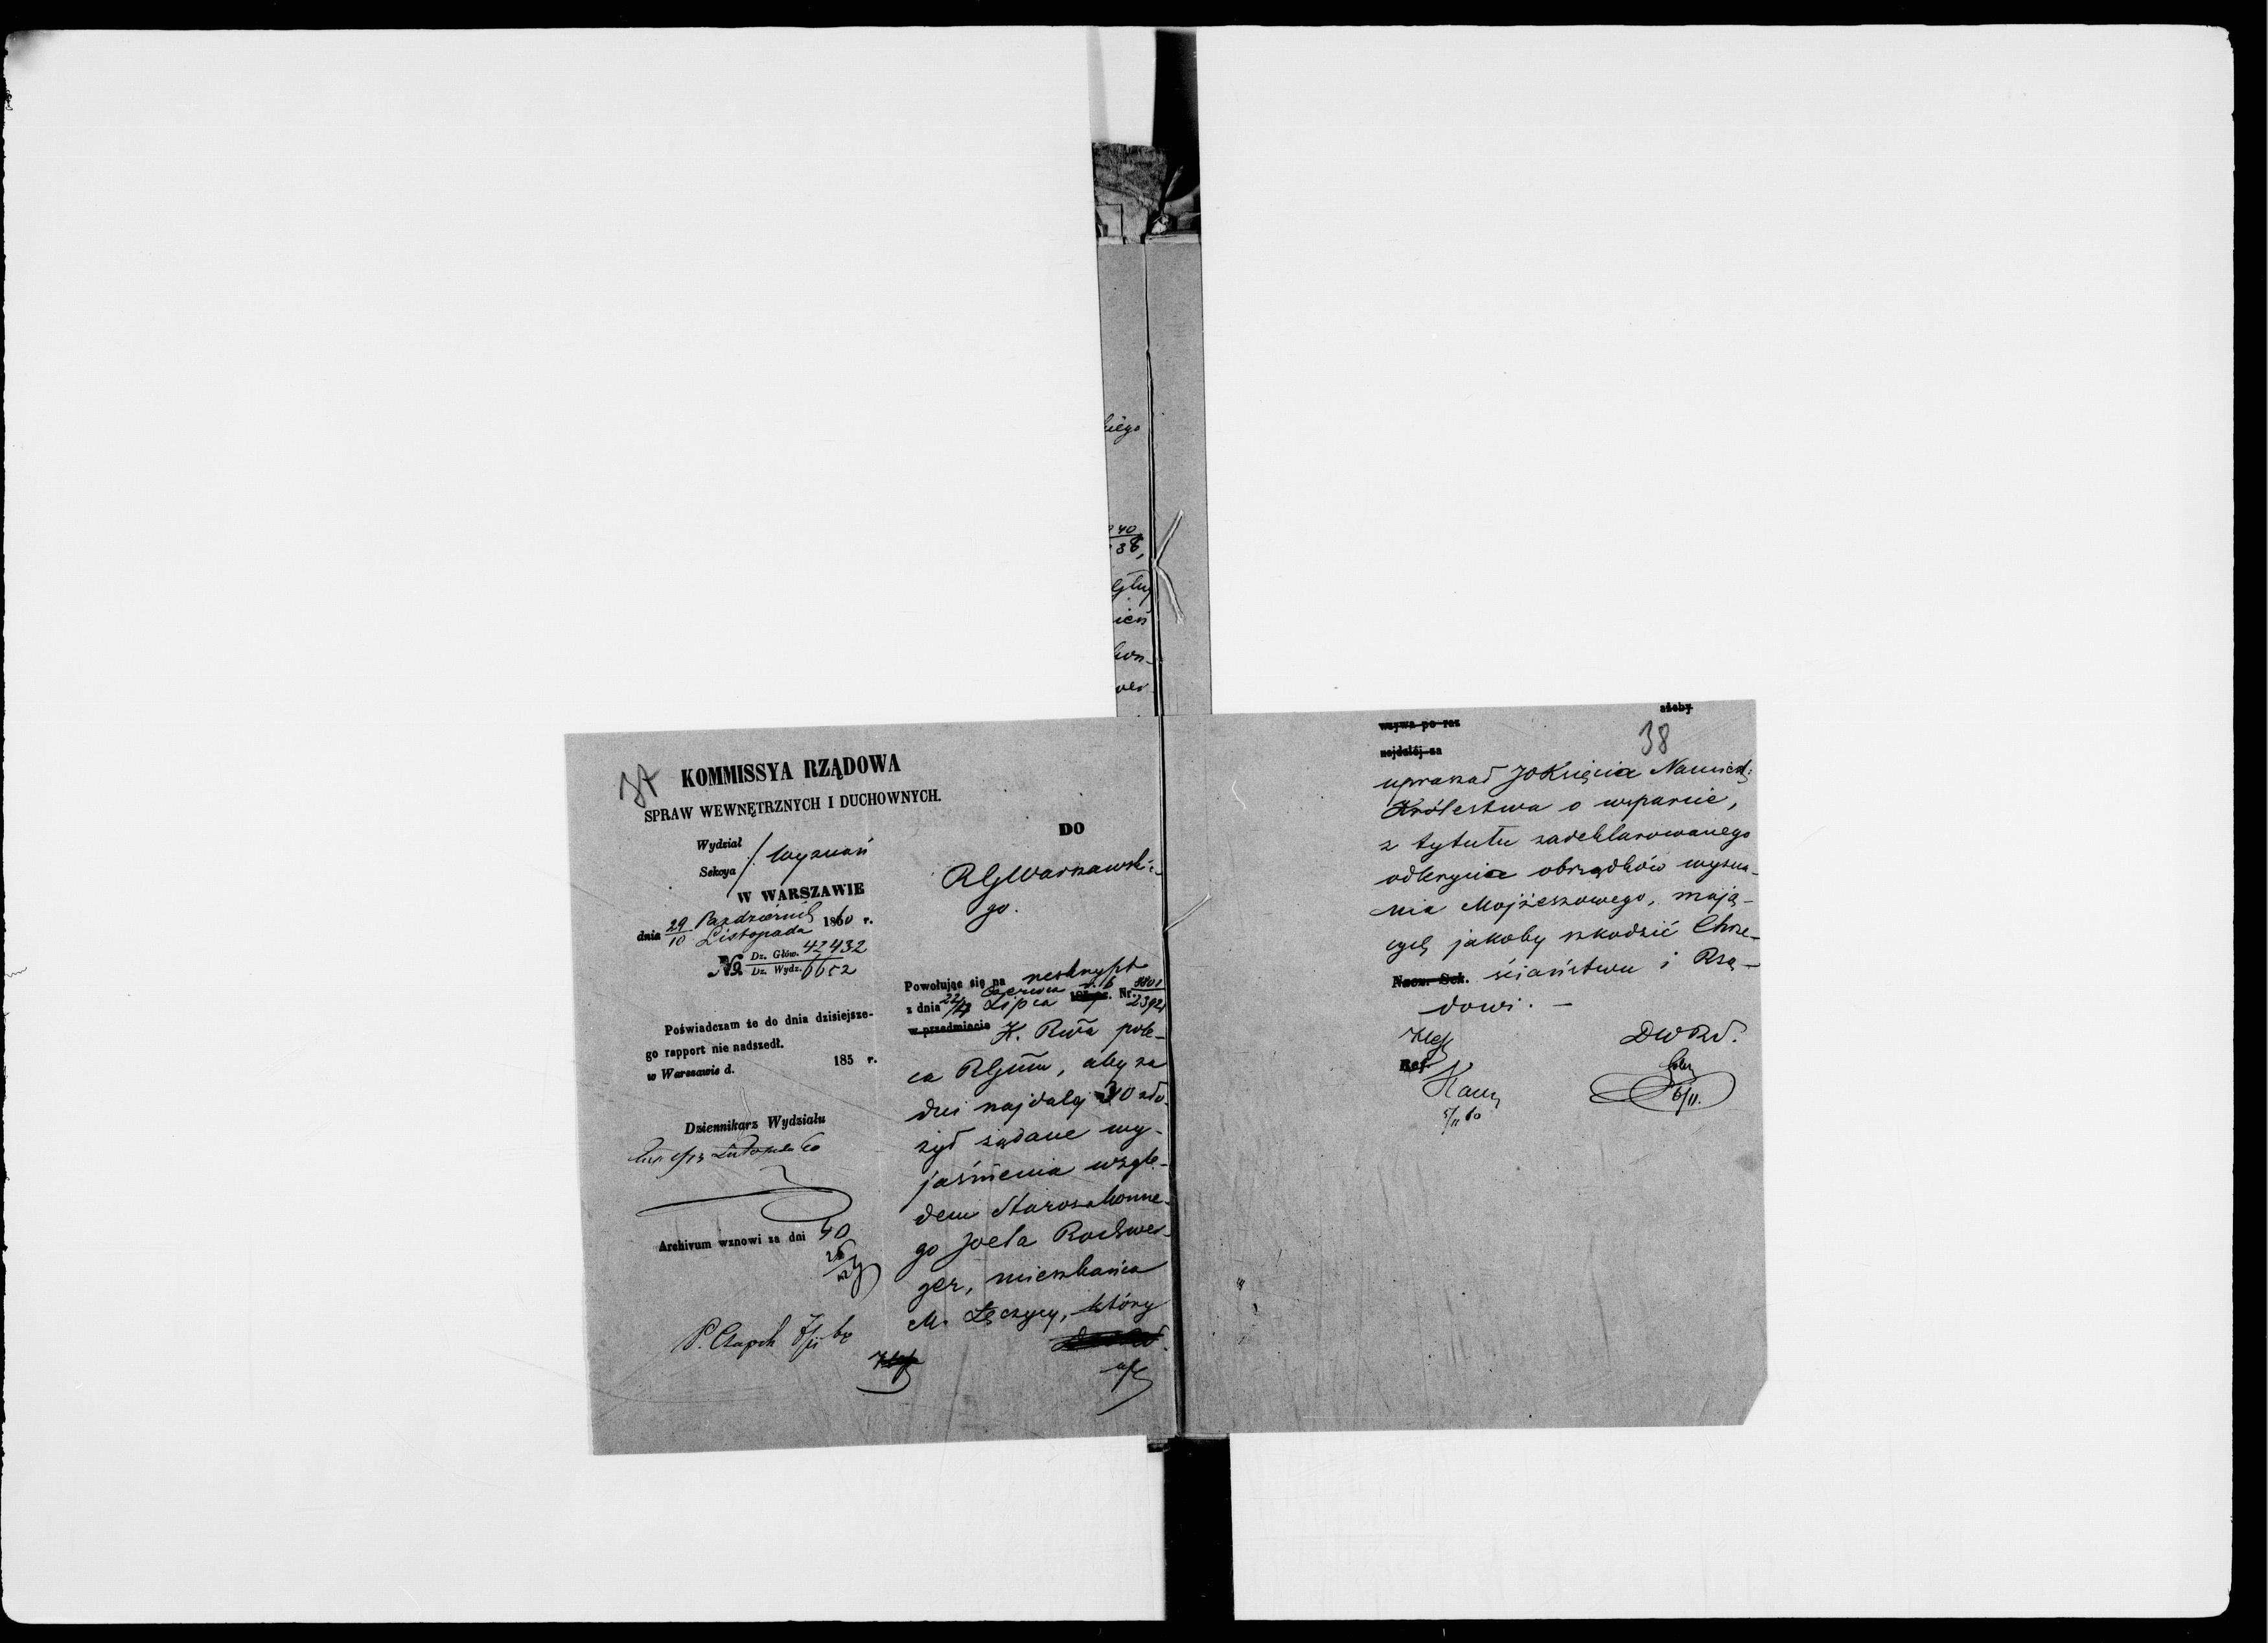 kiego
40
38,
ień
kon-
wer
KOMMISSYA RZĄDOWA
SPRAW WEWNĘTRZNYCH I DUCHOWNYCH.
Wydział
Sekcya
Wyznań
W WARSZAWIE
dnia 29/10 Październik/Listopada 1860 r.
No. Dz. Głów. 42432
Dz. Wydz. 6652
Poświadczam że do dnia dzisiejsze-
go rapport nie nadszedł.
w Warszawie d. 185 r.
Dziennikarz Wydziału
Archivum wznowi za dni 40
P. Czapsk 7/11 60
DO
RGWarszawskie-
go.
Powołując się na reskrypt
z dnia 22/4 Czerwca/Lipca r. b. Nr.
w przedmiocie K. Rwa pole-
ca RGmu, aby za
dni najdalej 30 zło-
żył żądane wy-
jaśnienia wzglę-
dem Starozakonne-
go Joela Rochwer-
ger, mieszkańca
M. Łęczycy, który
38
wzywa po raz ażeby
najdalej za
upraszał JOKsięcia Namiest:
Królestwa o wsparcie,
z tytułu zadeklarowanego
odkrycia obrządków wyzna-
nia Mojżeszowego, mają-
cych jakoby szkodzić Chrze-
Nacz. Sek. ściaństwu i Rzą-
dowi. —
DWRd.
Ref.
5/11 60
6/11.